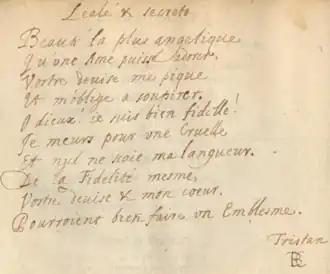 Lealé & secreto
Beauté la plus angelique
Qu'une Ame puisse adorer,
Vostre deuise me pique
Et m'oblige a soupirer.
O dieux ie suis bien fidelle!
Je meurs pour vne Cruelle
Et nul ne scaie ma langueur.
De la Fidelité mesme,
Vostre deuise & mon coeur.
Pourroient bien faire vn Emblesme.
Tristan